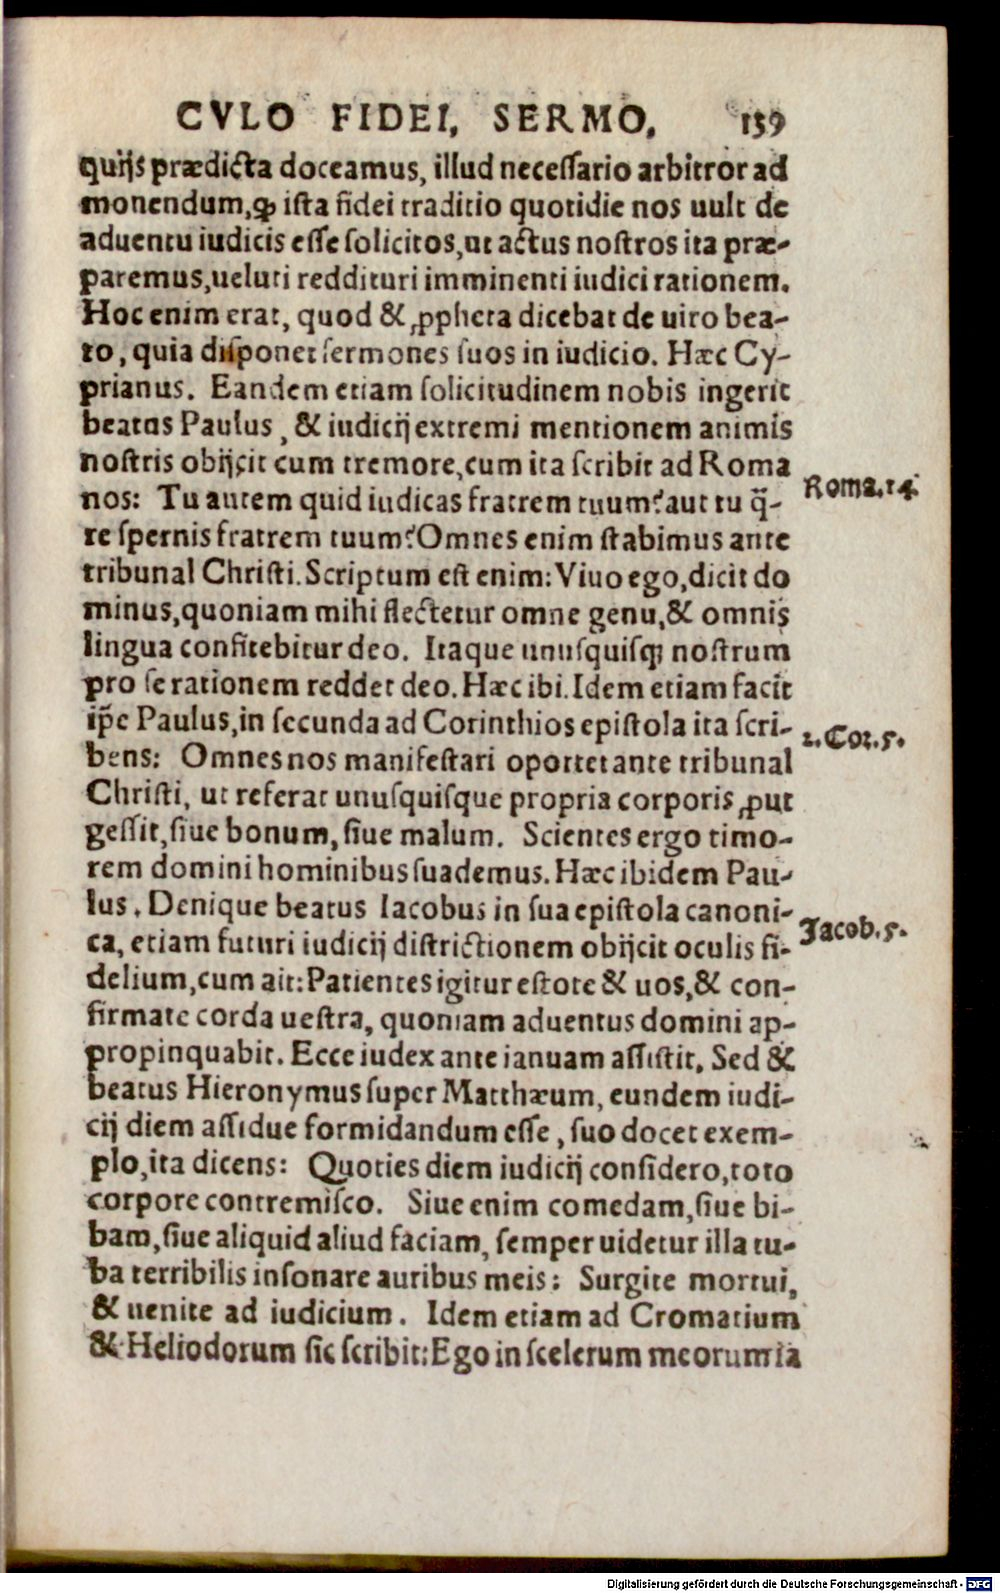 CVLO FIDEI, SERMO. 159
quijs prædicta doceamus, illud necessario arbitror ad
monendum, ꝙ ista fidei traditio quotidie nos uult de
aduentu iudicis esse solicitos, ut actus nostros ita præ-
paremus, ueluti reddituri imminenti iudici rationem.
Hoc enim erat, quod & ꝓpheta dicebat de uiro bea-
to, quia disponet sermones suos in iudicio. Hæc Cy-
prianus. Eandem etiam solicitudinem nobis ingerit
beatus Paulus, & iudicij extremi mentionem animis
nostris obijcit cum tremore, cum ita scribit ad Roma
nos: Tu autem quid iudicas fratrem tuum? aut tu q̃-
Roma. 14.
re spernis fratrem tuum? Omnes enim stabimus ante
tribunal Christi. Scriptum est enim: Viuo ego, dicit do
minus, quoniam mihi flectetur omne genu, & omnis
lingua confitebitur deo. Itaque unusquisqꝫ nostrum
pro se rationem reddet deo. Hæc ibi. Idem etiam facit
ip̃e Paulus, in secunda ad Corinthios epistola ita scri-
2. Cor. 5.
bens: Omnes nos manifestari oportet ante tribunal
Christi, ut referat unusquisque propria corporis, ꝓut
gessit, siue bonum, siue malum. Scientes ergo timo-
rem domini hominibus suademus. Hæc ibidem Pau-
lus. Denique beatus Iacobus in sua epistola canoni-
Jacob. 5.
ca, etiam futuri iudicij districtionem obijcit oculis fi-
delium, cum ait: Patientes igitur estote & uos, & con-
firmate corda uestra, quoniam aduentus domini ap-
propinquabit. Ecce iudex ante ianuam assistit. Sed &
beatus Hieronymus super Matthæum, eundem iudi-
cij diem assidue formidandum esse, suo docet exem-
plo, ita dicens: Quoties diem iudicij considero, toto
corpore contremisco. Siue enim comedam, siue bi-
bam, siue aliquid aliud faciam, semper uidetur illa tu-
ba terribilis insonare auribus meis: Surgite mortui,
& uenite ad iudicium. Idem etiam ad Cromatium
& Heliodorum sic scribit: Ego in scelerum meorum ia
Digitalisierung gefördert durch die Deutsche Forschungsgemeinschaft - DFG